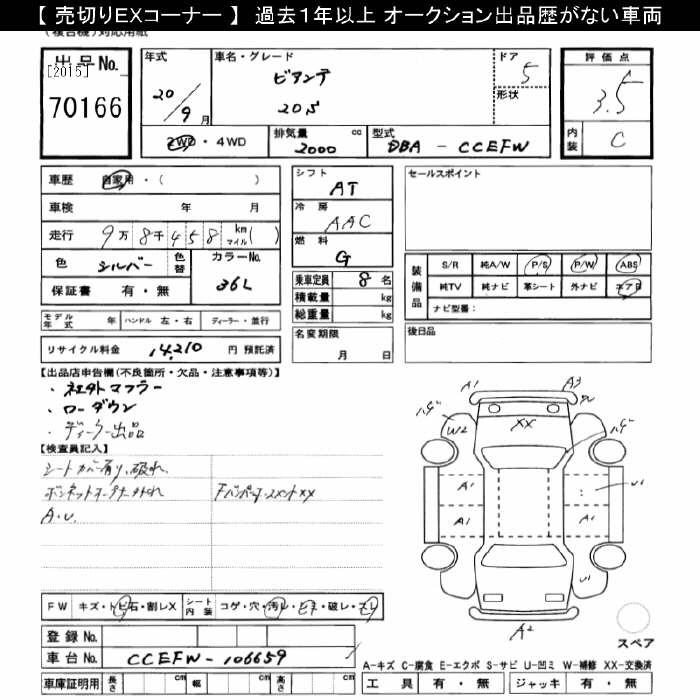 【 売切りEXコーナー 】 過去1年以上 オークション出品歴がない車両
(複合機)対応用紙
出品No.
[2015]
70166
年式
20/9月
車名・グレード
ビアンテ
20S
ドア
5
形状
評価点
3.5
内装
C
2WD・4WD
排気量
2000
cc
型式
DBA - CCEFW
車歴
自家用・( )
車検 年 月
走行 9万8千458 km マイル( )
色 シルバー 色替
カラーNo.
36L
保証書 有・無
シフト
AT
冷房
AAC
燃料
G
乗車定員 8名
積載量 kg
総重量 kg
名変期限
月 日
セールスポイント
装備品
S/R 純A/W P/S P/W ABS
純TV 純ナビ 革シート 外ナビ エアB
ナビ型番:
後日品
モデル年式 年 ハンドル 左・右 ディーラー・並行
リサイクル料金 14,210 円 預託済
【出品店申告欄(不良箇所・欠品・注意事項等)】
・社外マフラー
・ローダウン
・ディーラー出品
【検査員記入】
シートカバー有り、破れ
A・U
A1
A3
W2
XX
A1
A1
A1
U1
U1
A2
スペア
FW キズ・トビ石・割レX
シート内装 コゲ・穴・汚レ・
・破レ・
登録No.
車台No. CCEFW-106659
A-キズ C-腐食 E-エクボ S-サビ U-凹ミ W-補修 XX-交換済
車庫証明用 長さ cm 幅 cm 高さ cm
工具 有・無 ジャッキ 有・無